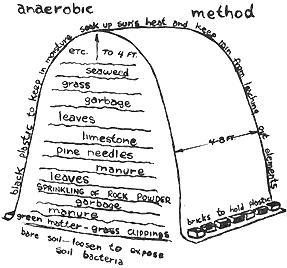 anaerobic method
black plastic to keep in moisture soak up sun's heat and keep rain from leaching out elements
ETC. TO 4 FT.
seaweed
grass
garbage
leaves
limestone
pine needles
manure
leaves
SPRINKLING OF ROCK POWDER
garbage
manure
green matter - grass CLIPPINGS
bare soil - loosen to expose
soil bacteria
4-8 FT.
bricks to hold plastic